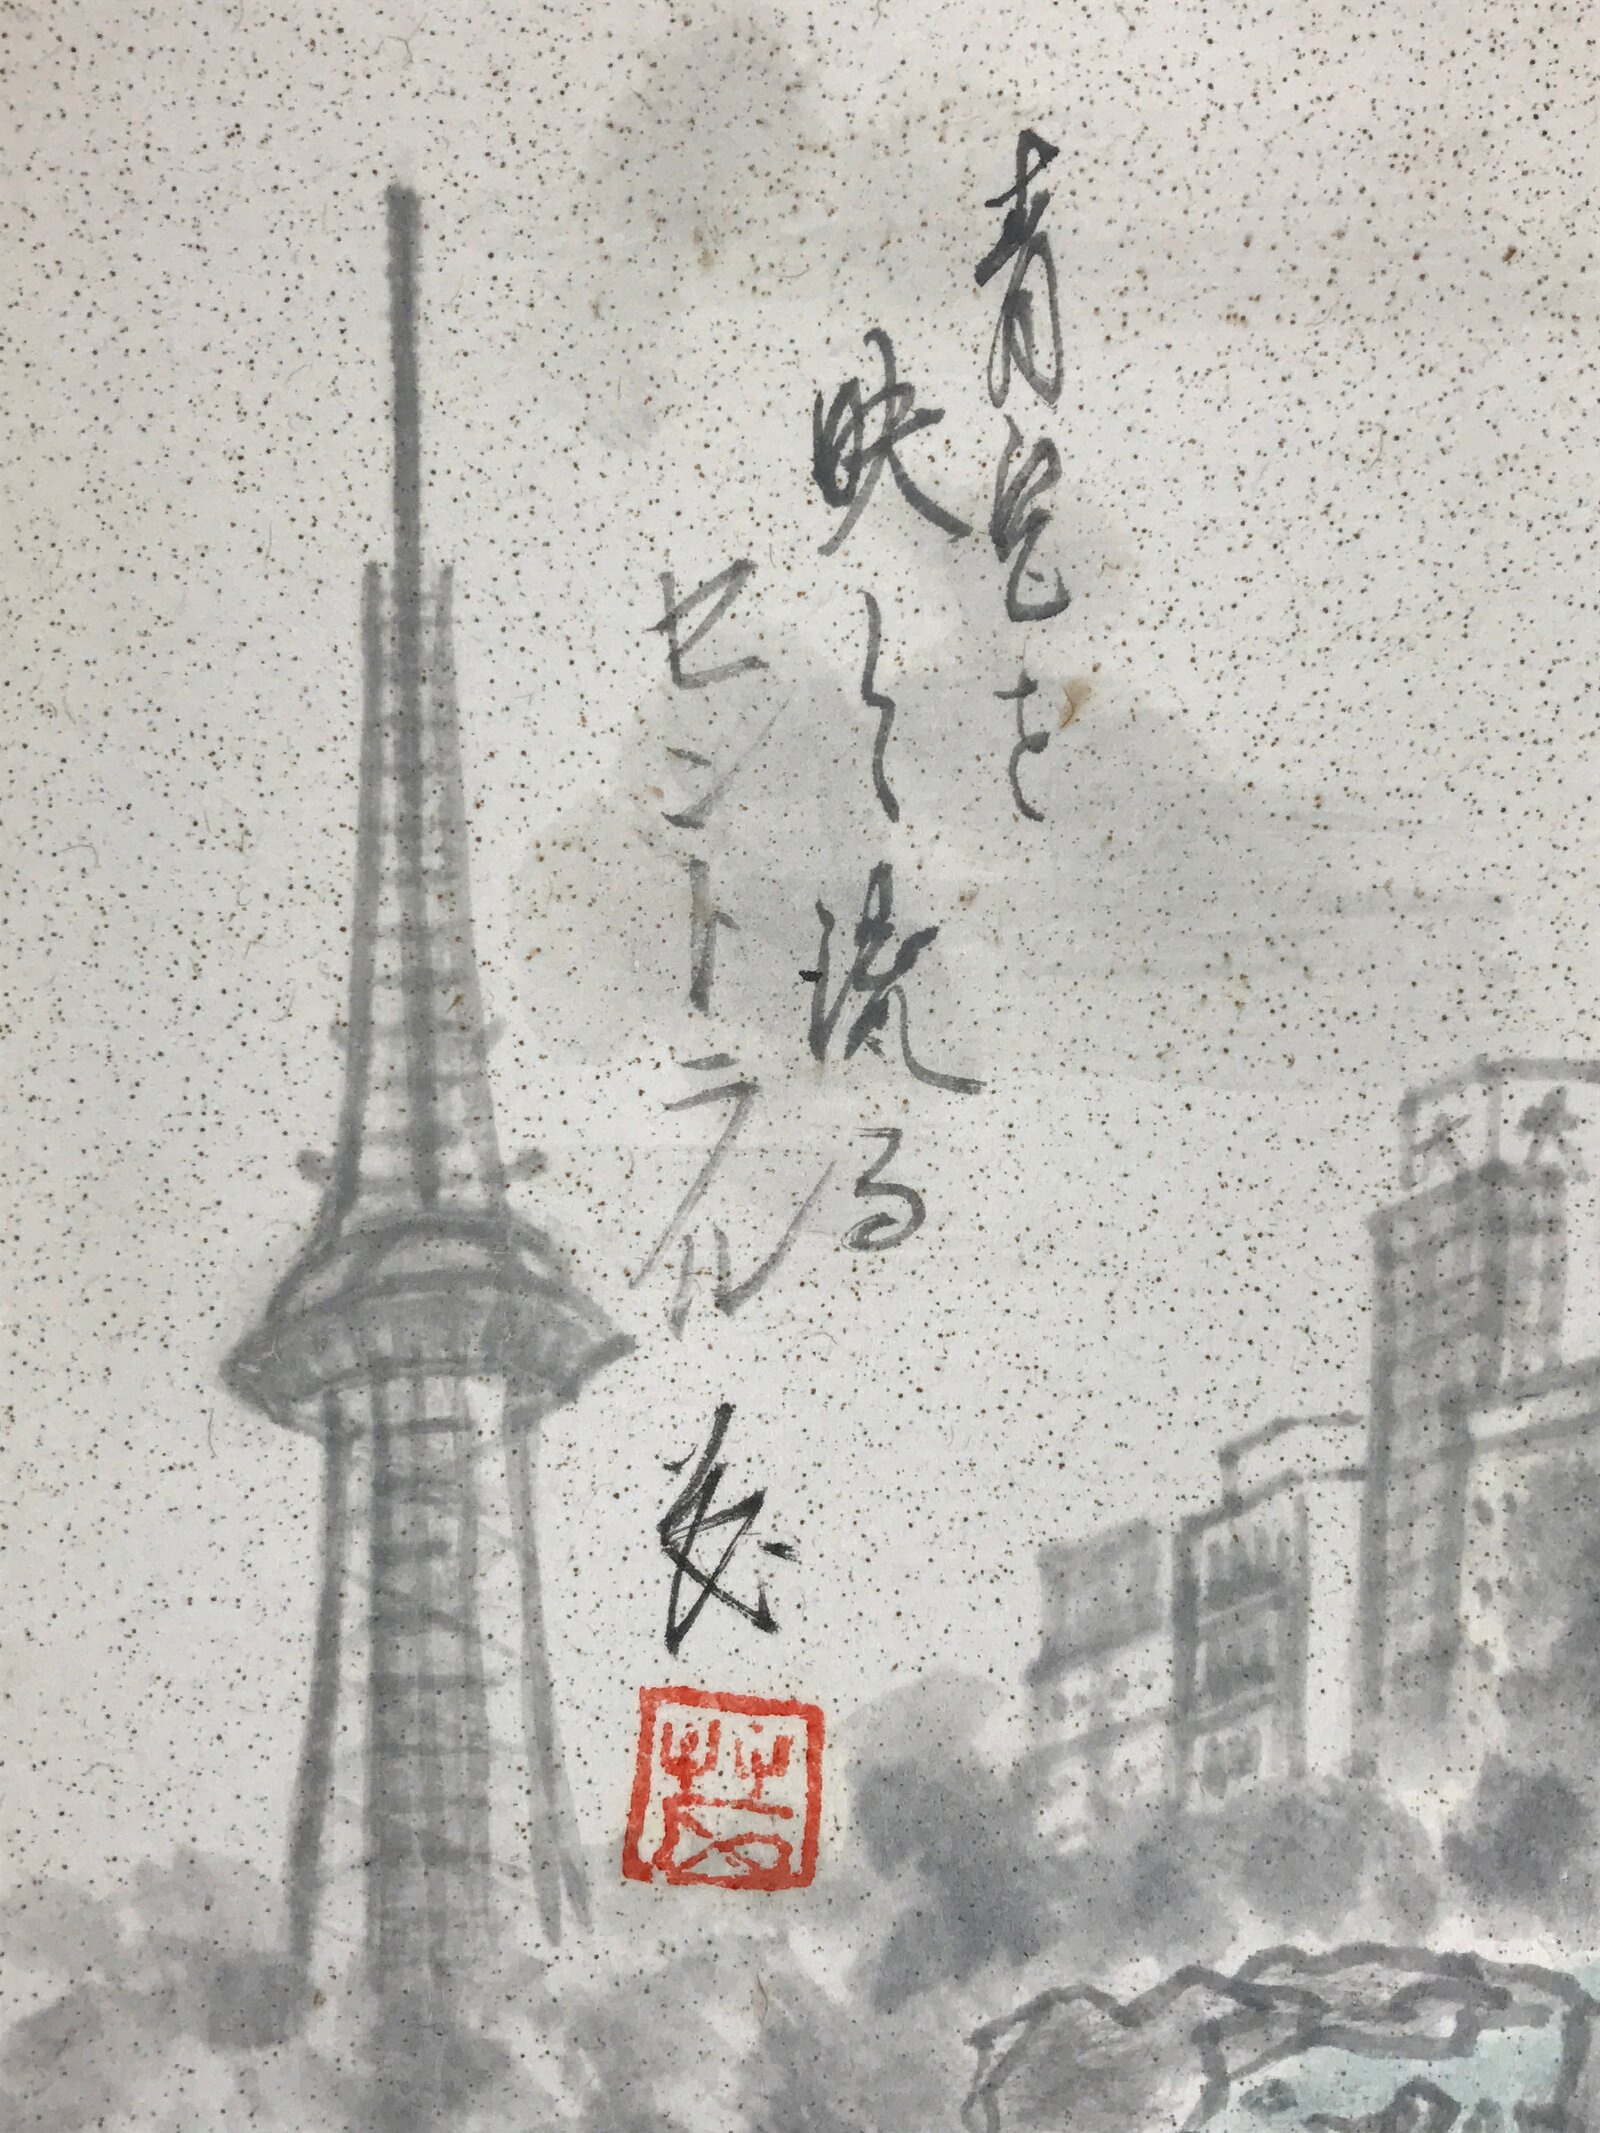 青空を
映して流る
セントラル